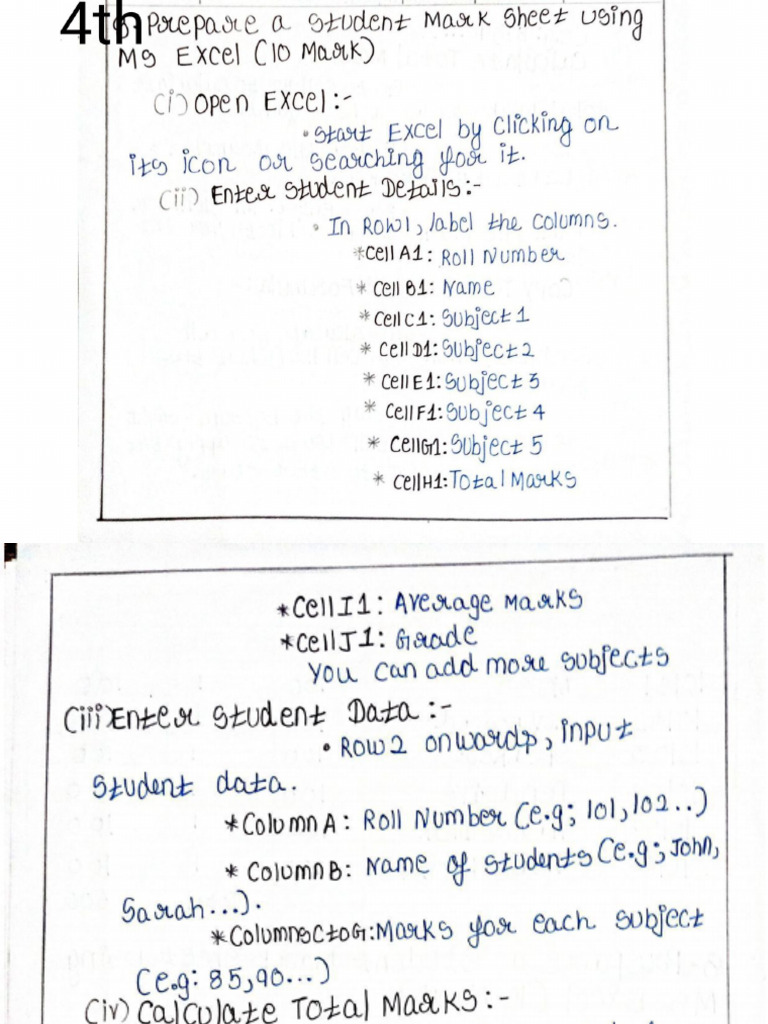 4th
Prepare a Student Mark Sheet using
MS EXCEL (10 Mark)
(i) Open EXCEL:-
• Start EXCEL by Clicking on
its icon or Searching for it.
(ii) Enter Student Details:-
• In Row1, label the Columns.
*Cell A1: Roll Number
* Cell B1: Name
* Cell C1: Subject 1
* Cell D1: Subject 2
* Cell E1: Subject 3
* Cell F1: Subject 4
* Cell G1: Subject 5
* Cell H1: Total Marks
*Cell I1: Average Marks
*Cell J1: Grade
You Can add more Subjects
(iii) Enter Student Data:-
• Row 2 onwards, input
Student data.
*Column A: Roll Number (e.g; 101, 102..)
* Column B: Name of Students (e.g; John,
Sarah...).
*Columns C to G: Marks for each Subject
(e.g: 85, 90...)
(iv) Calculate Total Marks:-